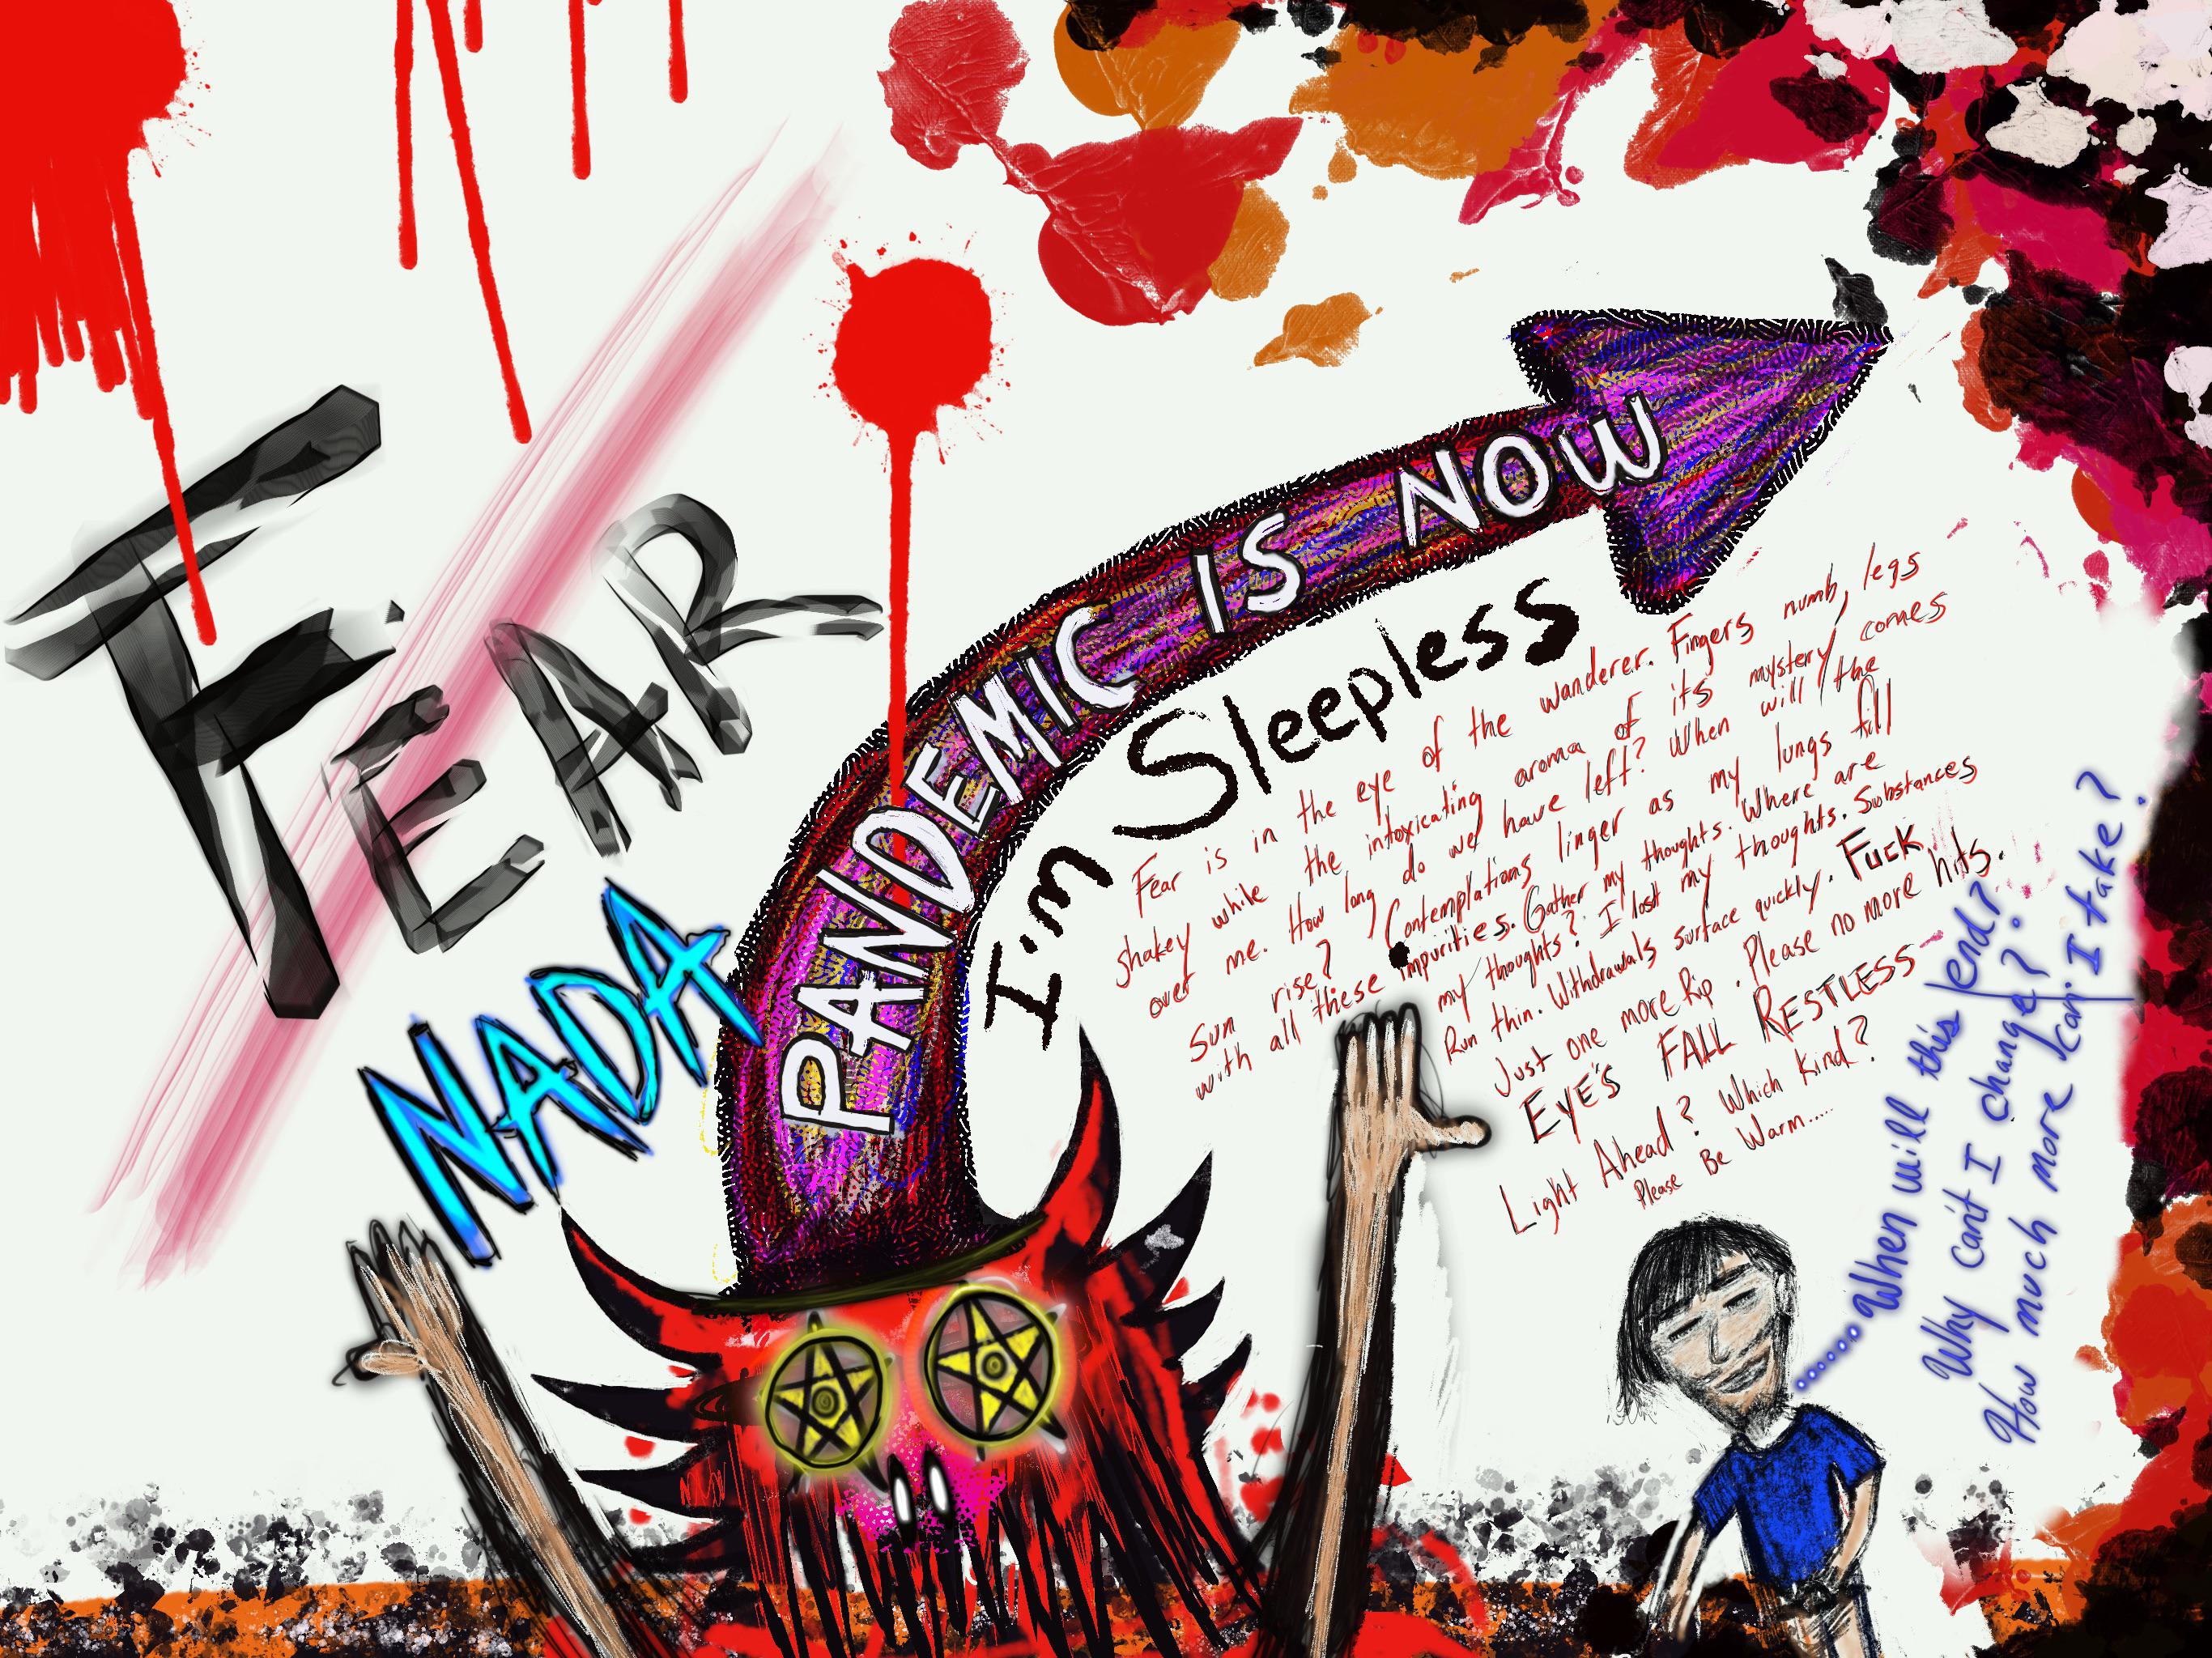 FEAR
NADA
PANDEMIC IS NOW
I'm Sleepless
Fear is in the eye of the wanderer. Fingers numb, legs
shakey while the intoxicating aroma of its mystery comes
over me. How long do we have left? When will the
Sun rise? Contemplations linger as my lungs fill
with all these impurities. Gather my thoughts. Where are
my thoughts? I lost my thoughts. Substances
Run thin. Withdrawals surface quickly. Fuck,
Just one more Rip. Please no more hits.
EYE'S FALL RESTLESS
Light Ahead? Which kind?
Please Be Warm.....
When will this end?
Why can't I change?
How much more can I take?